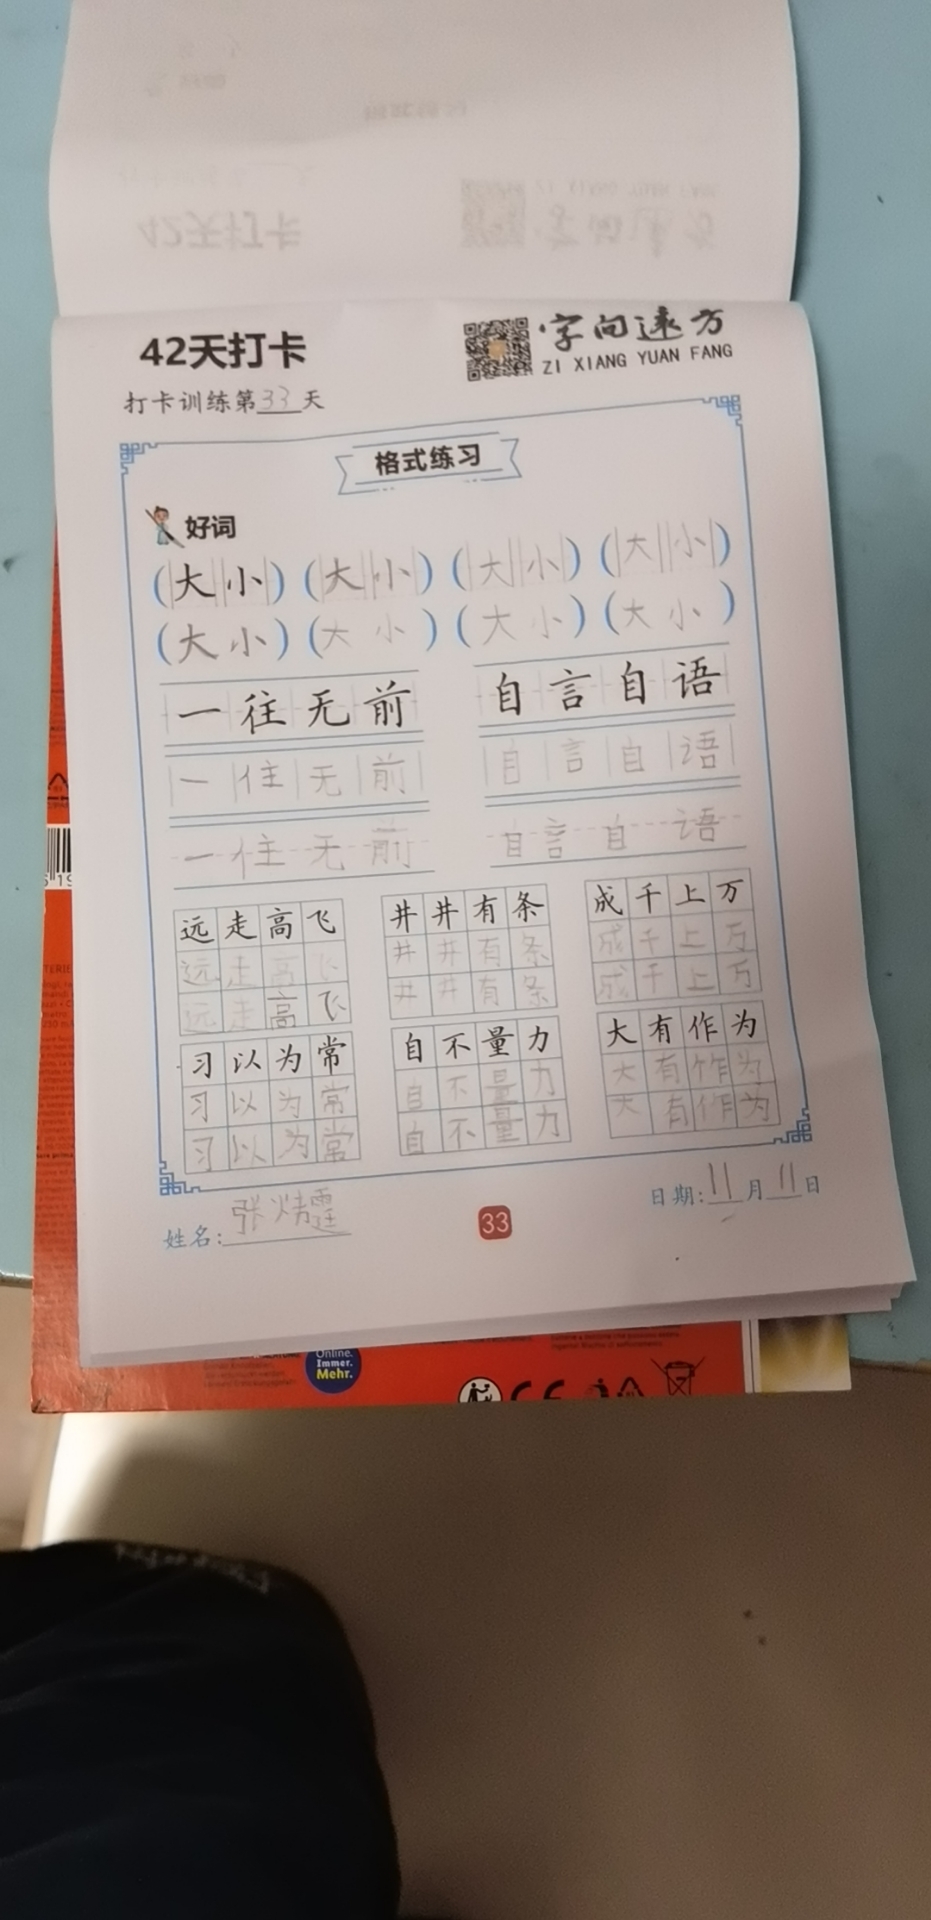 42天打卡
字向远方
ZI XIANG YUAN FANG
打卡训练第33天
格式练习
好词
(大小) (大小) (大小) (大小)
(大小) (大小) (大小) (大小)
一往无前 自言自语
一往无前 自言自语
一往无前 自言自语
远走高飞 井井有条 成千上万
远走高飞 井井有条 成千上万
远走高飞 井井有条 成千上万
习以为常 自不量力 大有作为
习以为常 自不量力 大有作为
习以为常 自不量力 大有作为
姓名:张
33
日期:11月11日
Online.
Immer.
Mehr.